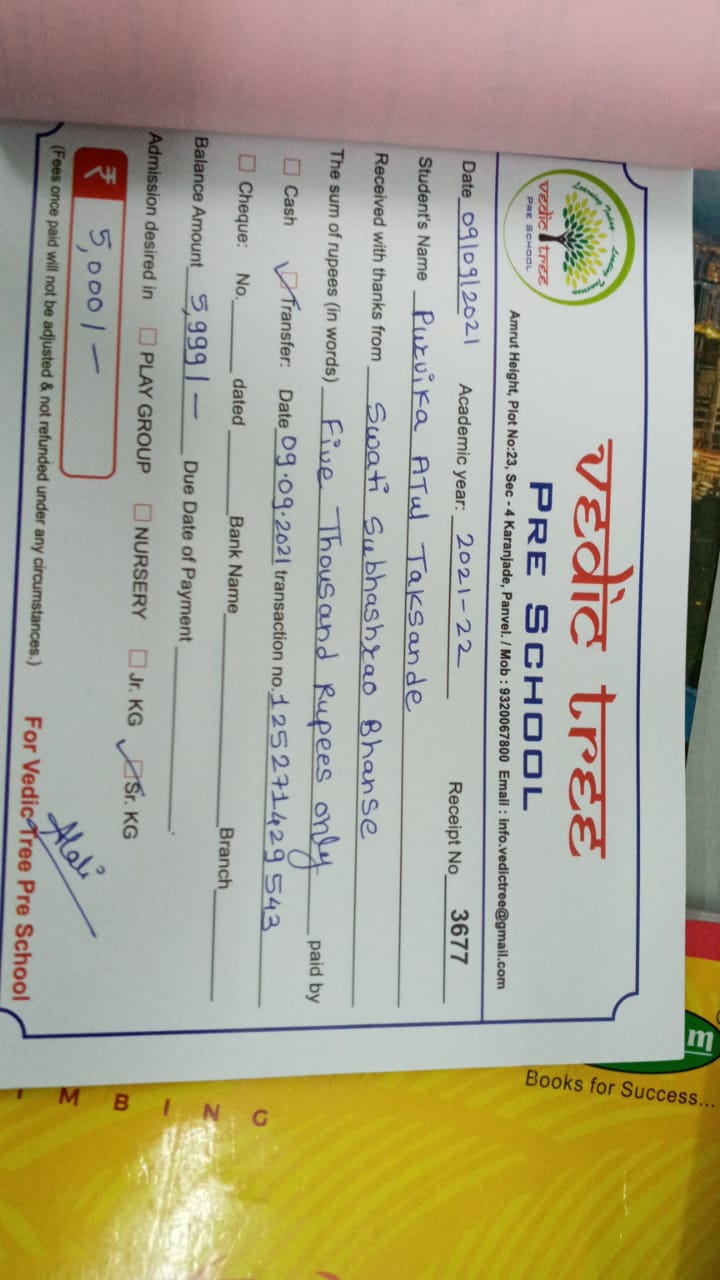 vedic tree
PRE SCHOOL
vedic tree
PRE SCHOOL
Amrut Height, Plot No:23, Sec - 4 Karanjade, Panvel. / Mob : 9320067800 Email : info.vedictree@gmail.com
Date 09/09/2021 Academic year: 2021-22 Receipt No 3677
Student's Name Purvika Atul Taksande
Received with thanks from Swati Subhashrao Bhanse
The sum of rupees (in words) Five Thousand Rupees only paid by
Cash Transfer: Date 09.09.2021 transaction no. 125271429543
Cheque: No. dated Bank Name Branch
Balance Amount 5,999/- Due Date of Payment
Admission desired in PLAY GROUP NURSERY Jr. KG Sr. KG
₹ 5,000/-
(Fees once paid will not be adjusted & not refunded under any circumstances.)
For Vedic Tree Pre School
m
Books for Success...
M B I N G